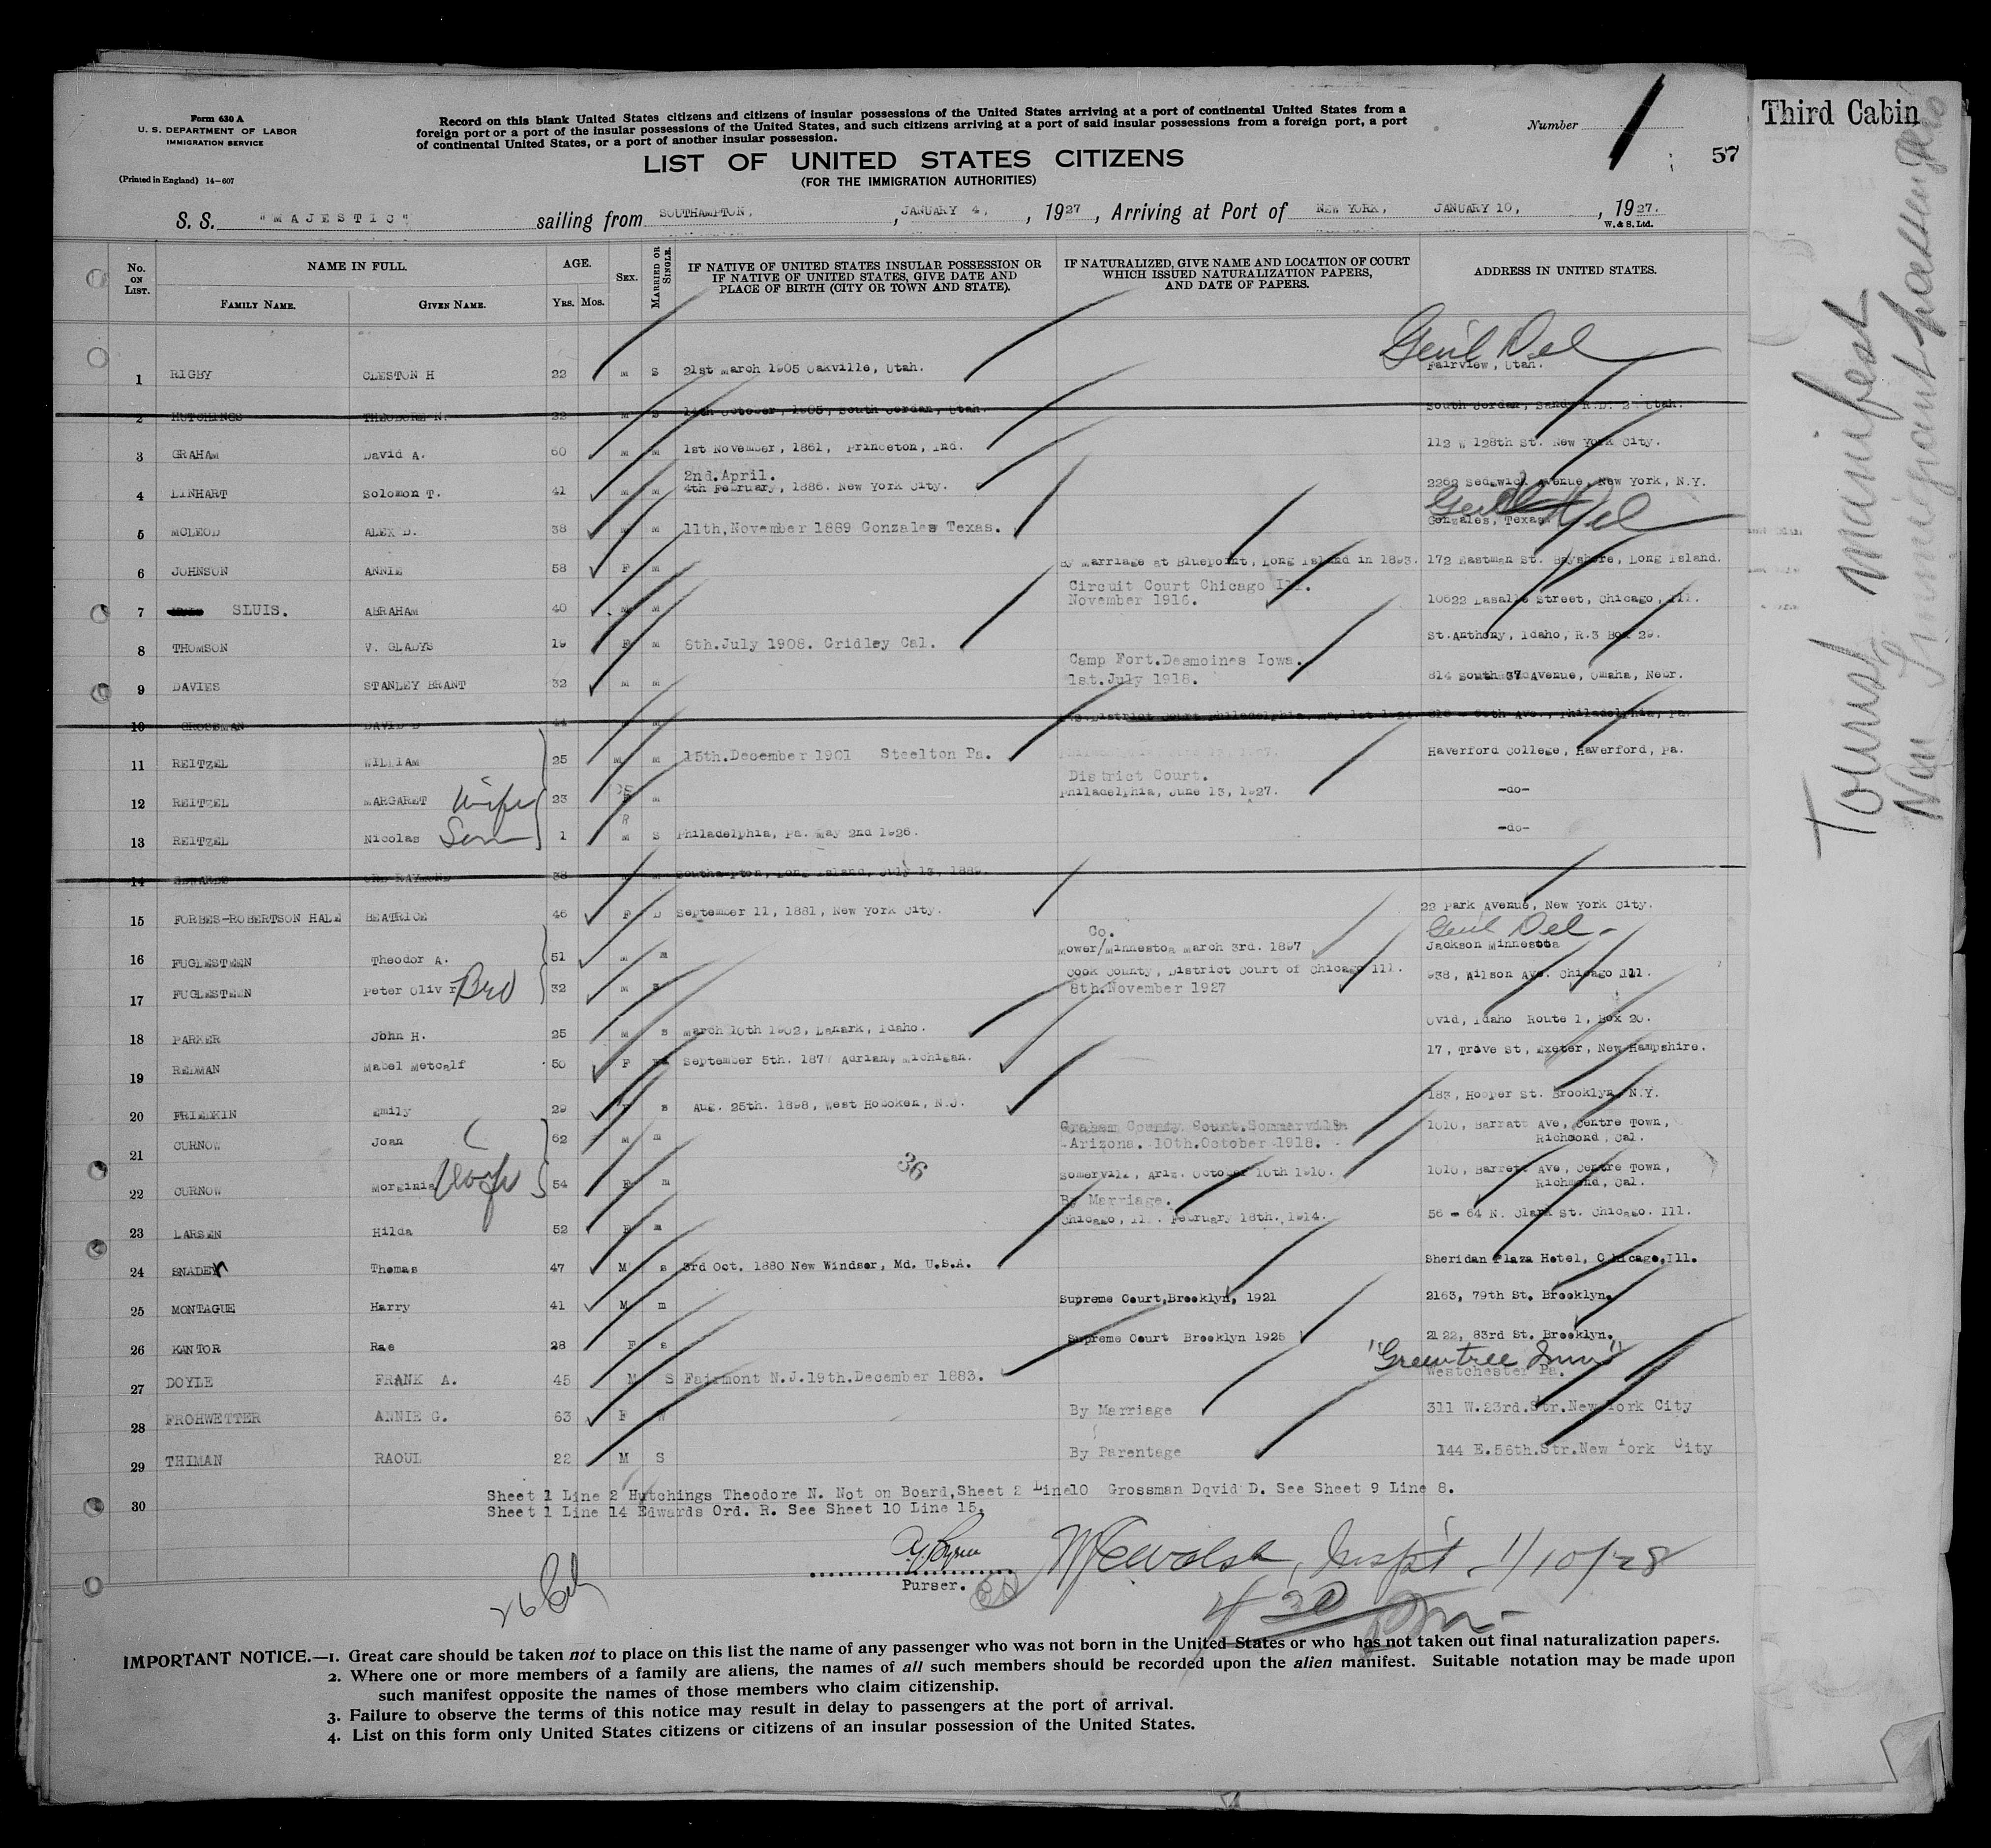 Form 630 A
U. S. DEPARTMENT OF LABOR
IMMIGRATION SERVICE
(Printed in England) 14-607
Record on this blank United States citizens and citizens of insular possessions of the United States arriving at a port of continental United States from a
foreign port or a port of the insular possessions of the United States, and such citizens arriving at a port of said insular possessions from a foreign port, a port
of continental United States, or a port of another insular possession.
LIST OF UNITED STATES CITIZENS
(FOR THE IMMIGRATION AUTHORITIES)
Number 1
57
Third Cabin
Tourist manifest
Non Immigrant passengers
S. S. "MAJESTIC" sailing from SOUTHAMPTON, , JANUARY 4, , 1927 , Arriving at Port of NEW YORK, JANUARY 10, , 1927.
W. & S. Ltd.
No. ON LIST. NAME IN FULL. FAMILY NAME. GIVEN NAME. AGE. YRS. MOS. SEX. MARRIED OR SINGLE. IF NATIVE OF UNITED STATES INSULAR POSSESSION OR IF NATIVE OF UNITED STATES, GIVE DATE AND PLACE OF BIRTH (CITY OR TOWN AND STATE). IF NATURALIZED, GIVE NAME AND LOCATION OF COURT WHICH ISSUED NATURALIZATION PAPERS, AND DATE OF PAPERS. ADDRESS IN UNITED STATES.
Gen'l Del
1 RIGBY CLESTON H 22 M S 21st March 1905 Oakville, Utah. Fairview, Utah.
2 HUTCHINGS THEODORE N. 22 M S 14th October, 1905, South Jordan, Utah. South Jordan, Sandy R.D. 2 Utah.
3 GRAHAM David A. 60 M M 1st November, 1861, Princeton, Ind. 112 W 128th St. New York City.
2nd.April.
4 LINHART Solomon T. 41 M M 4th February, 1886. New York City. 2262 Sedgwick Avenue, New York, N.Y.
Gen'l Del
5 MCLEOD ALEX D. 38 M M 11th,November 1889 Gonzales Texas. Gonzales, Texas.
6 JOHNSON ANNIE 58 F M By Marriage at Bluepoint, Long Island in 1893. 172 Eastman St. Bayshore, Long Island.
Circuit Court Chicago Ill.
7 SLUIS. ABRAHAM 40 M M November 1916. 10622 Lasalle Street, Chicago, Ill.
8 THOMSON V. GLADYS 19 F M 8th.July 1908. Gridley Cal. St.Anthony, Idaho, R.3 Box 29.
Camp Fort.Desmoines Iowa.
9 DAVIES STANLEY BRANT 32 M M 1st.July 1918. 814 South 37 Avenue, Omaha, Nebr.
10 GROSSMAN DAVID D 44 M District Court Philadelphia, May 1st Ave., Philadelphia, Pa.
11 REITZEL WILLIAM 25 M M 15th.December 1901 Steelton Pa. Haverford College, Haverford, Pa.
District Court.
12 REITZEL MARGARET Wife 23 F M Philadelphia, June 13, 1927. -do-
13 REITZEL Nicolas Son 1 M S Philadelphia, Pa. May 2nd 1926. -do-
14 EDWARDS ORD RAYMOND 38 M M Southampton, Long Island, July 13, 1889.
15 FORBES-ROBERTSON HALE BEATRICE 46 F D September 11, 1881, New York City. 22 Park Avenue, New York City.
Co. Gen'l Del.
16 FUGLESTEEN Theodor A. 51 M m Mower/Minnestoa March 3rd. 1897 Jackson Minnestoa
Cook County, District Court of Chicago Ill.
17 FUGLESTEEN Peter Oliv r Bro 32 M 8th.November 1927 938, Wilson Ave. Chicago Ill.
18 PARKER John H. 25 M s March 10th 1902, Lanark, Idaho. Ovid, Idaho Route 1, Box 20.
19 REDMAN Mabel Metcalf 50 F September 5th. 1877 Adrian, Michigan. 17, Trove St, Exeter, New Hampshire.
20 FRIEDKIN Emily 29 F s Aug. 25th. 1898, West Hoboken, N.J. 183, Hooper St. Brooklyn, N.Y.
Graham County Court.Sommerville
21 CURNOW Joan 62 M m Arizona. 10th.October 1918. 1010, Barratt Ave, Centre Town, Richmond, Cal.
36
22 CURNOW Morginia Wife 54 F m Somervile, Ariz. October 10th 1910. 1010, Barrett Ave, Centre Town, Richmond, Cal.
By Marriage.
23 LARSEN Hilda 52 F m Chicago, Ill. February 18th. 1914. 56 - 64 N. Clark St. Chicago. Ill.
24 SNADER Thomas 47 M s 3rd Oct. 1880 New Windsor, Md. U.S.A. Sheridan Plaza Hotel, Chicago,Ill.
25 MONTAGUE Harry 41 M m Supreme Court,Brooklyn, 1921 2163, 79th St. Brooklyn.
26 KANTOR Rae 28 F s Supreme Court Brooklyn 1925 2122, 83rd St. Brooklyn.
"Greentree Inn"
27 DOYLE FRANK A. 45 M S Fairmont N.J.19th.December 1883. Westchester Pa.
28 FROHWETTER ANNIE G. 63 F W By Marriage 311 W.23rd.Str.New York City
29 THIMAN RAOUL 22 M S By Parentage 144 E.56th.Str.New York City
30
Sheet 1 Line 2 Hutchings Theodore N. Not on Board,Sheet 2 Line10 Grossman Dqvid D. See Sheet 9 Line 8.
Sheet 1 Line 14 Edwards Ord. R. See Sheet 10 Line 15.
Purser.
Insp't. 1/10/28
4 30 Pm
IMPORTANT NOTICE.—1. Great care should be taken not to place on this list the name of any passenger who was not born in the United States or who has not taken out final naturalization papers.
2. Where one or more members of a family are aliens, the names of all such members should be recorded upon the alien manifest. Suitable notation may be made upon
such manifest opposite the names of those members who claim citizenship.
3. Failure to observe the terms of this notice may result in delay to passengers at the port of arrival.
4. List on this form only United States citizens or citizens of an insular possession of the United States.